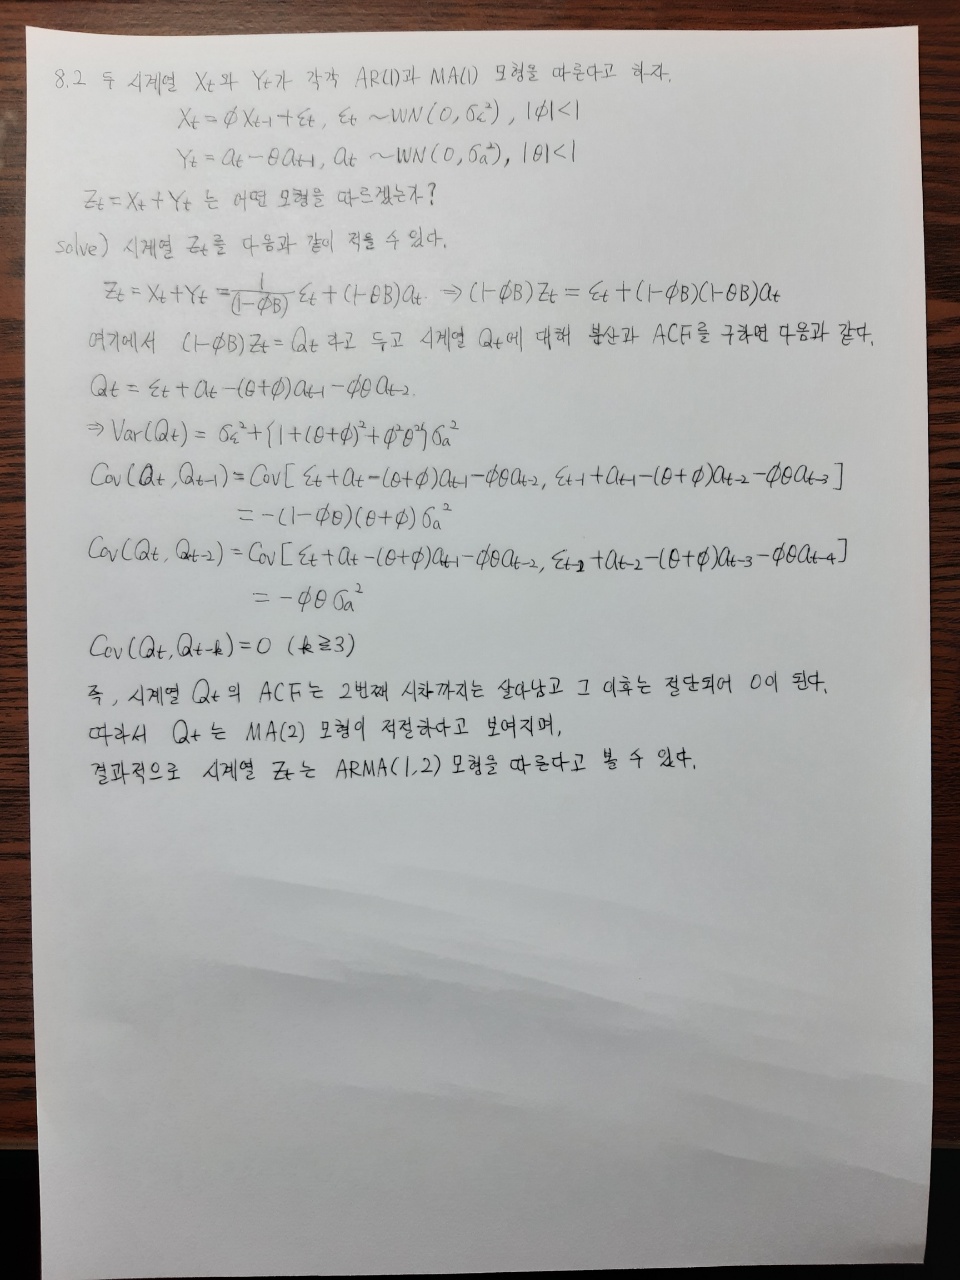 8.2 두 시계열 Xt와 Yt가 각각 AR(1)과 MA(1) 모형을 따른다고 하자.
Xt = φXt-1 + εt, εt ~ WN(0, σε²), |φ|<1
Yt = at - θat-1, at ~ WN(0, σa²), |θ|<1
Zt = Xt + Yt 는 어떤 모형을 따르겠는가?
solve) 시계열 Zt를 다음과 같이 적을 수 있다.
Zt = Xt + Yt = 1/(1-φB) εt + (1-θB)at ⇒ (1-φB)Zt = εt + (1-φB)(1-θB)at
여기에서 (1-φB)Zt = Qt 라고 두고 시계열 Qt에 대해 분산과 ACF를 구하면 다음과 같다.
Qt = εt + at - (θ+φ)at-1 - φθat-2.
⇒ Var(Qt) = σε² + {1+(θ+φ)²+φ²θ²}σa²
Cov(Qt, Qt-1) = Cov[εt + at - (θ+φ)at-1 - φθat-2, εt-1 + at-1 - (θ+φ)at-2 - φθat-3]
= -(1-φθ)(θ+φ)σa²
Cov(Qt, Qt-2) = Cov[εt + at - (θ+φ)at-1 - φθat-2, εt-2 + at-2 - (θ+φ)at-3 - φθat-4]
= -φθσa²
Cov(Qt, Qt-k) = 0 (k≥3)
즉, 시계열 Qt의 ACF는 2번째 시차까지는 살아남고 그 이후는 절단되어 0이 된다.
따라서 Qt는 MA(2) 모형이 적절하다고 보여지며,
결과적으로 시계열 Zt는 ARMA(1,2) 모형을 따른다고 볼 수 있다.